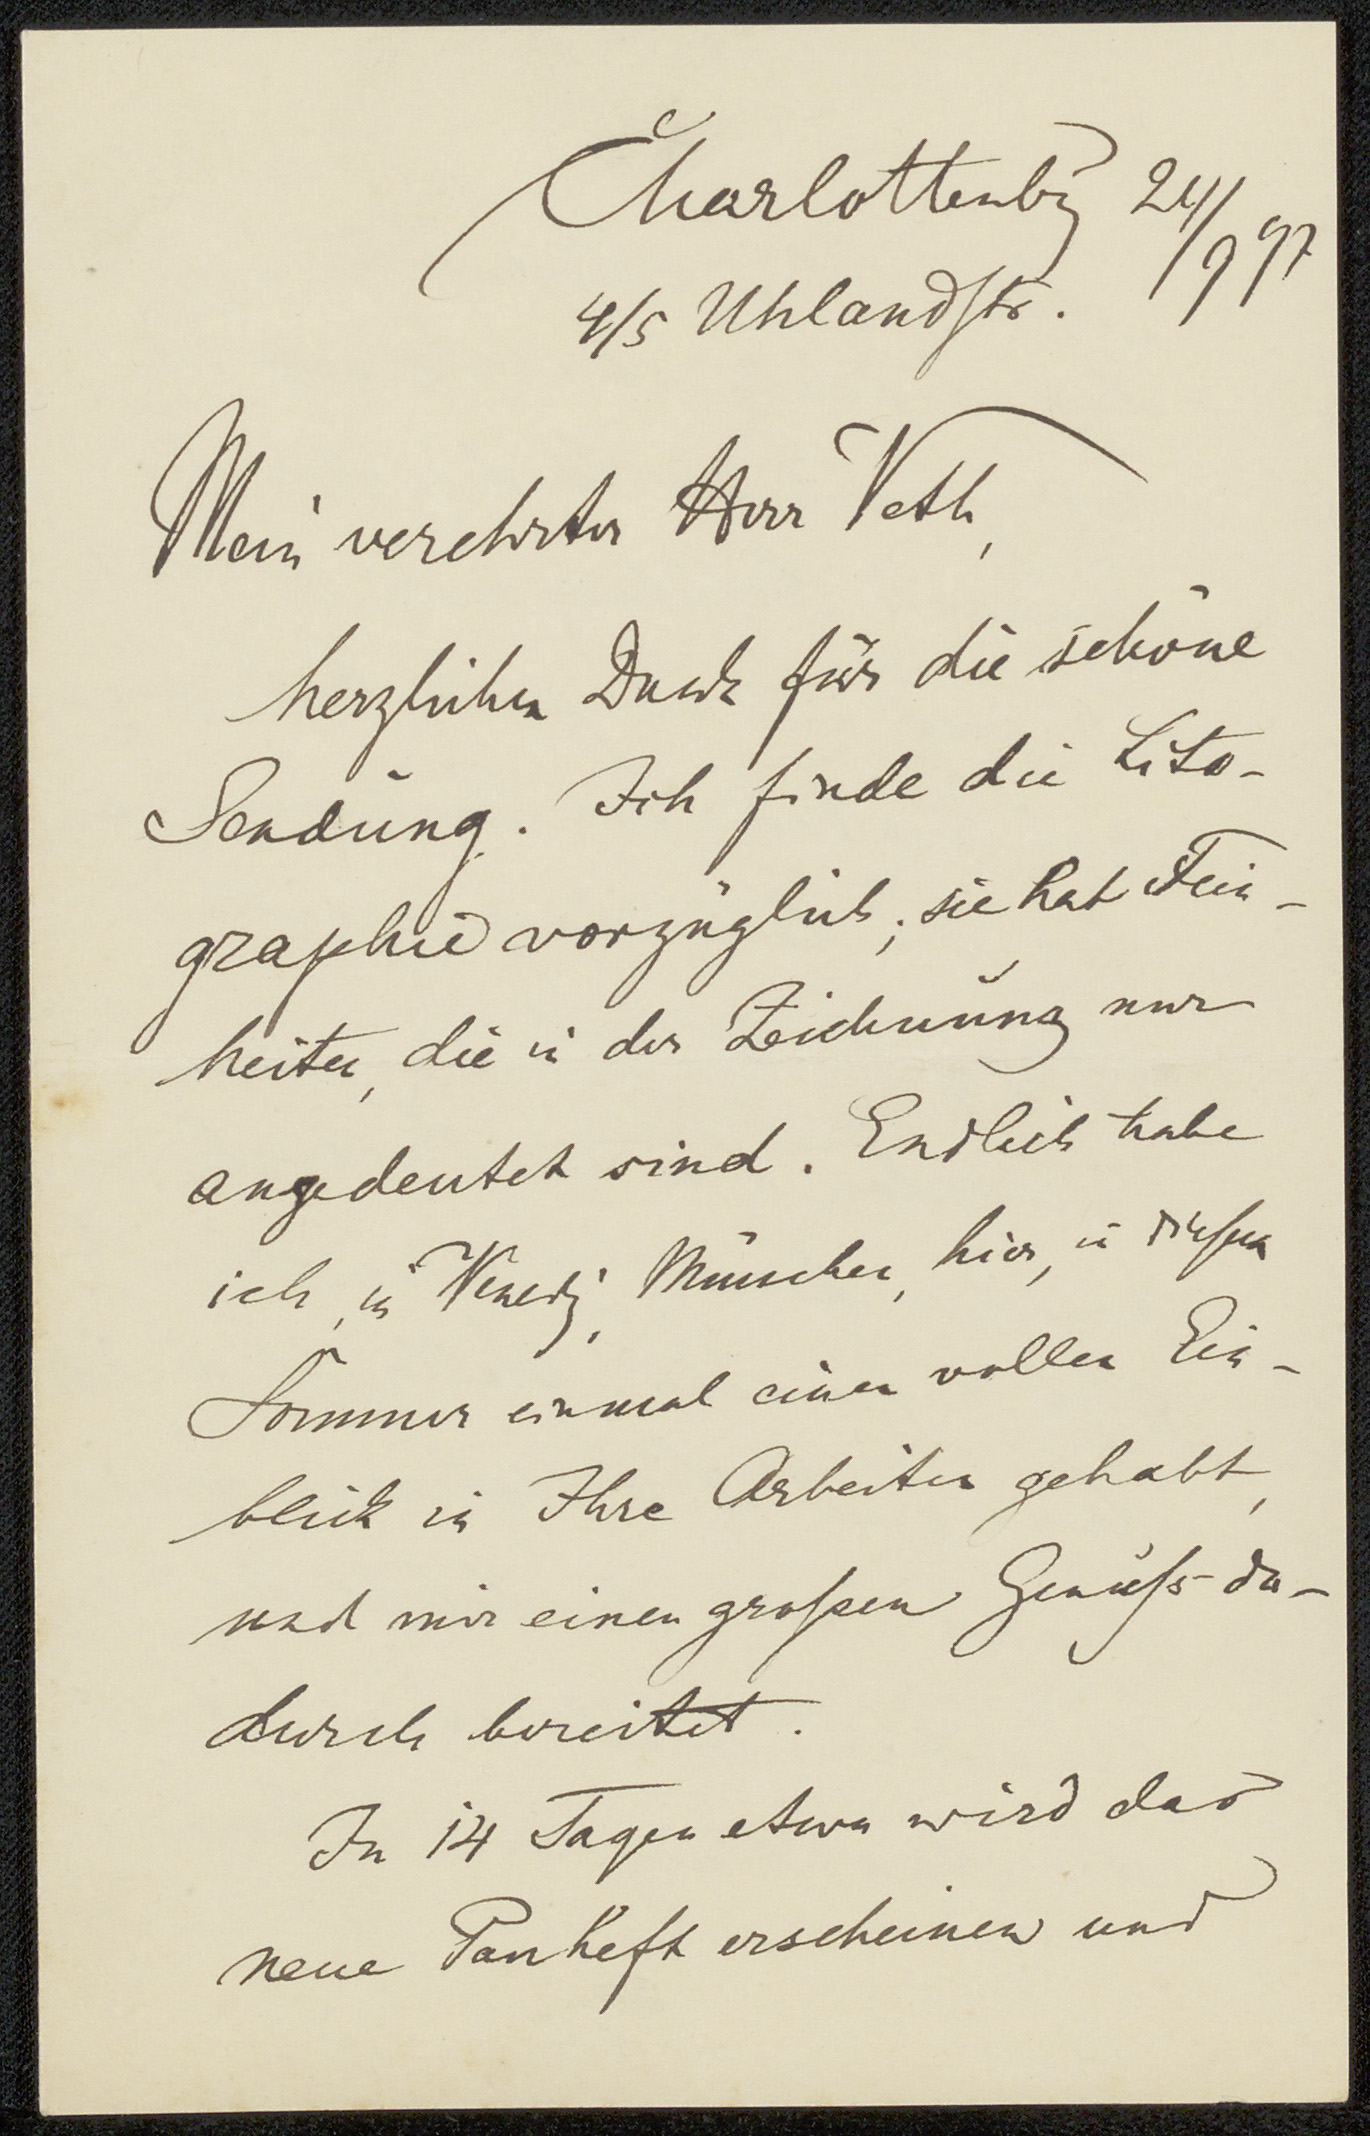 Charlottenbg 24/9 97
4/5 Uhlandstr.
Mein verehrter Herr Veth,
herzlichen Dank für die schöne
Sendung. Ich finde die Lito-
graphie vorzüglich; sie hat Fein-
heiten, die in der Zeichnung nur
angedeutet sind. Endlich habe
ich, in Venedig, München, hier, in diesem
Sommer einmal einen vollen Ein-
blick in Ihre Arbeiten gehabt,
und mir einen großen Genuß da-
durch bereitet.
In 14 Tagen etwa wird das
neue Panheft erscheinen und